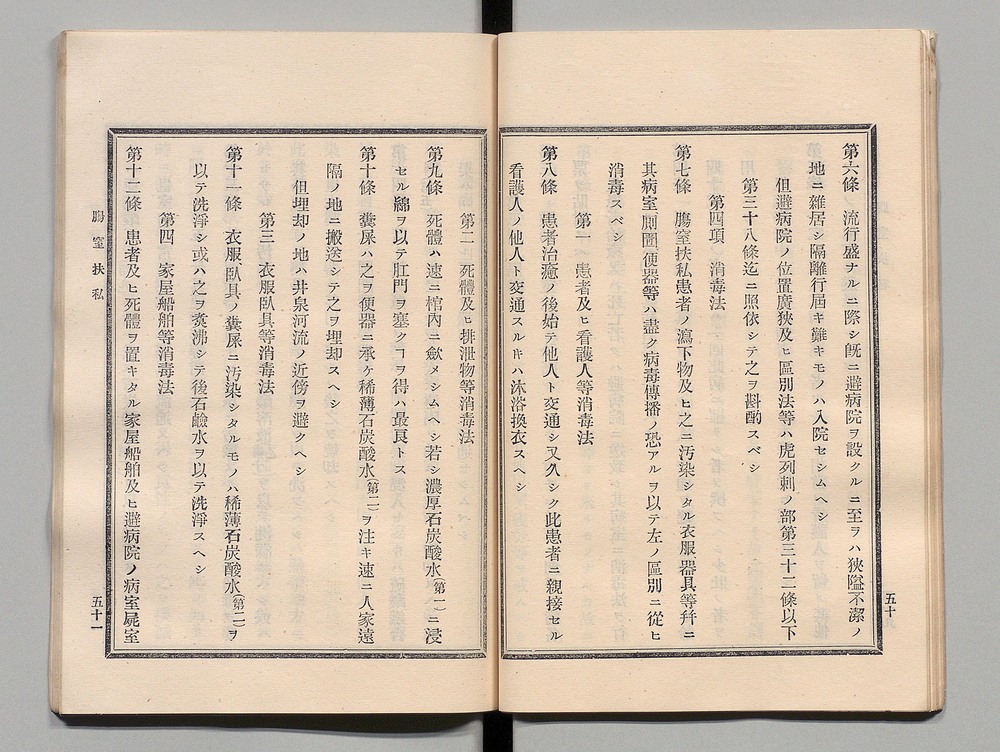 第六條 流行盛ナルニ際シ既ニ避病院ヲ設クルニ至ラハ狹隘不潔ノ
地ニ雜居シ隔離行屆キ難キモノハ入院セシムヘシ
但避病院ノ位置廣狹及ヒ區別法等ハ虎列剌ノ部第三十二條以下
第三十八條迄ニ照依シテ之ヲ斟酌スベシ
第四項 消毒法
第七條 腸窒扶私患者ノ瀉下物及ヒ之ニ汚染シタル衣服器具等幷ニ
其病室厠圊便器等ハ盡ク病毒傳播ノ恐アルヲ以テ左ノ區別ニ從ヒ
消毒スベシ
第一 患者及ヒ看護人等消毒法
第八條 患者治癒ノ後始テ他人ト交通シ又久シク此患者ニ親接セル
看護人ノ他人ト交通スルヰハ沐浴換衣スヘシ
五十
第二 死體及ヒ排泄物等消毒法
第九條 死體ハ速ニ棺內ニ歛メシムヘシ若シ濃厚石炭酸水(第一)ニ浸
セル綿ヲ以テ肛門ヲ塞クヿヲ得ハ最良トス
第十條 糞尿ハ之ヲ便器ニ承ケ稀薄石炭酸水(第二)ヲ注キ速ニ人家遠
隔ノ地ニ搬送シテ之ヲ埋却スヘシ
但埋却ノ地ハ井泉河流ノ近傍ヲ避クヘシ
第三 衣服臥具等消毒法
第十一條 衣服臥具ノ糞尿ニ汚染シタルモノハ稀薄石炭酸水(第二)ヲ
以テ洗淨シ或ハ之ヲ煑沸シテ後石鹼水ヲ以テ洗淨スヘシ
第四 家屋船舶等消毒法
第十二條 患者及ヒ死體ヲ置キタル家屋船舶及ヒ避病院ノ病室屍室
腸窒扶私
五十一